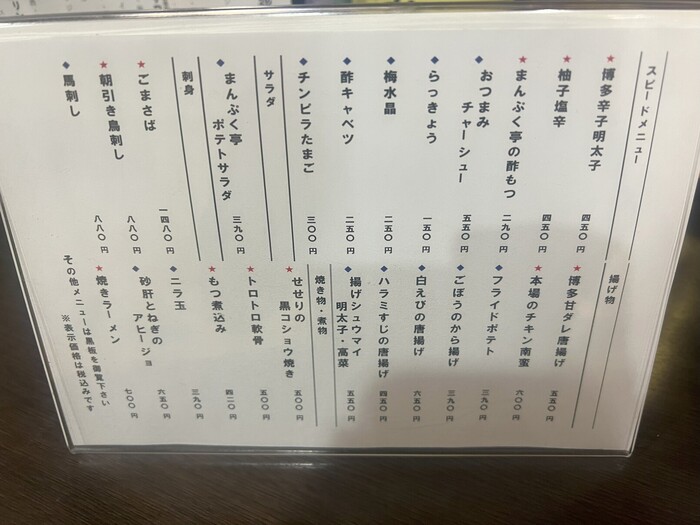 スピードメニュー
★博多辛子明太子 四五〇円
★柚子塩辛 四五〇円
★まんぷく亭の酢もつ 二九〇円
◆おつまみ
チャーシュー 五五〇円
◆らっきょう 一五〇円
◆梅水晶 二五〇円
◆酢キャベツ 二五〇円
◆チンピラたまご 三〇〇円
サラダ
◆まんぷく亭
ポテトサラダ 三九〇円
刺身
★ごまさば 一四八〇円
★朝引き鳥刺し 八八〇円
◆馬刺し 八八〇円
揚げ物
★博多甘ダレ唐揚げ 五五〇円
★本場のチキン南蛮 六〇〇円
◆フライドポテト 三九〇円
◆ごぼうのから揚げ 三九〇円
◆白えびの唐揚げ 六五〇円
◆ハラミすじの唐揚げ 四五〇円
◆揚げシュウマイ
明太子・高菜 五五〇円
焼き物・煮物
★せせりの
黒コショウ焼き 五〇〇円
★トロトロ軟骨 五〇〇円
★もつ煮込み 四二〇円
◆ニラ玉 三九〇円
◆砂肝とねぎの
アヒージョ 六五〇円
★焼きラーメン 七〇〇円
その他メニューは黒板を御覧下さい
※表示価格は税込みです